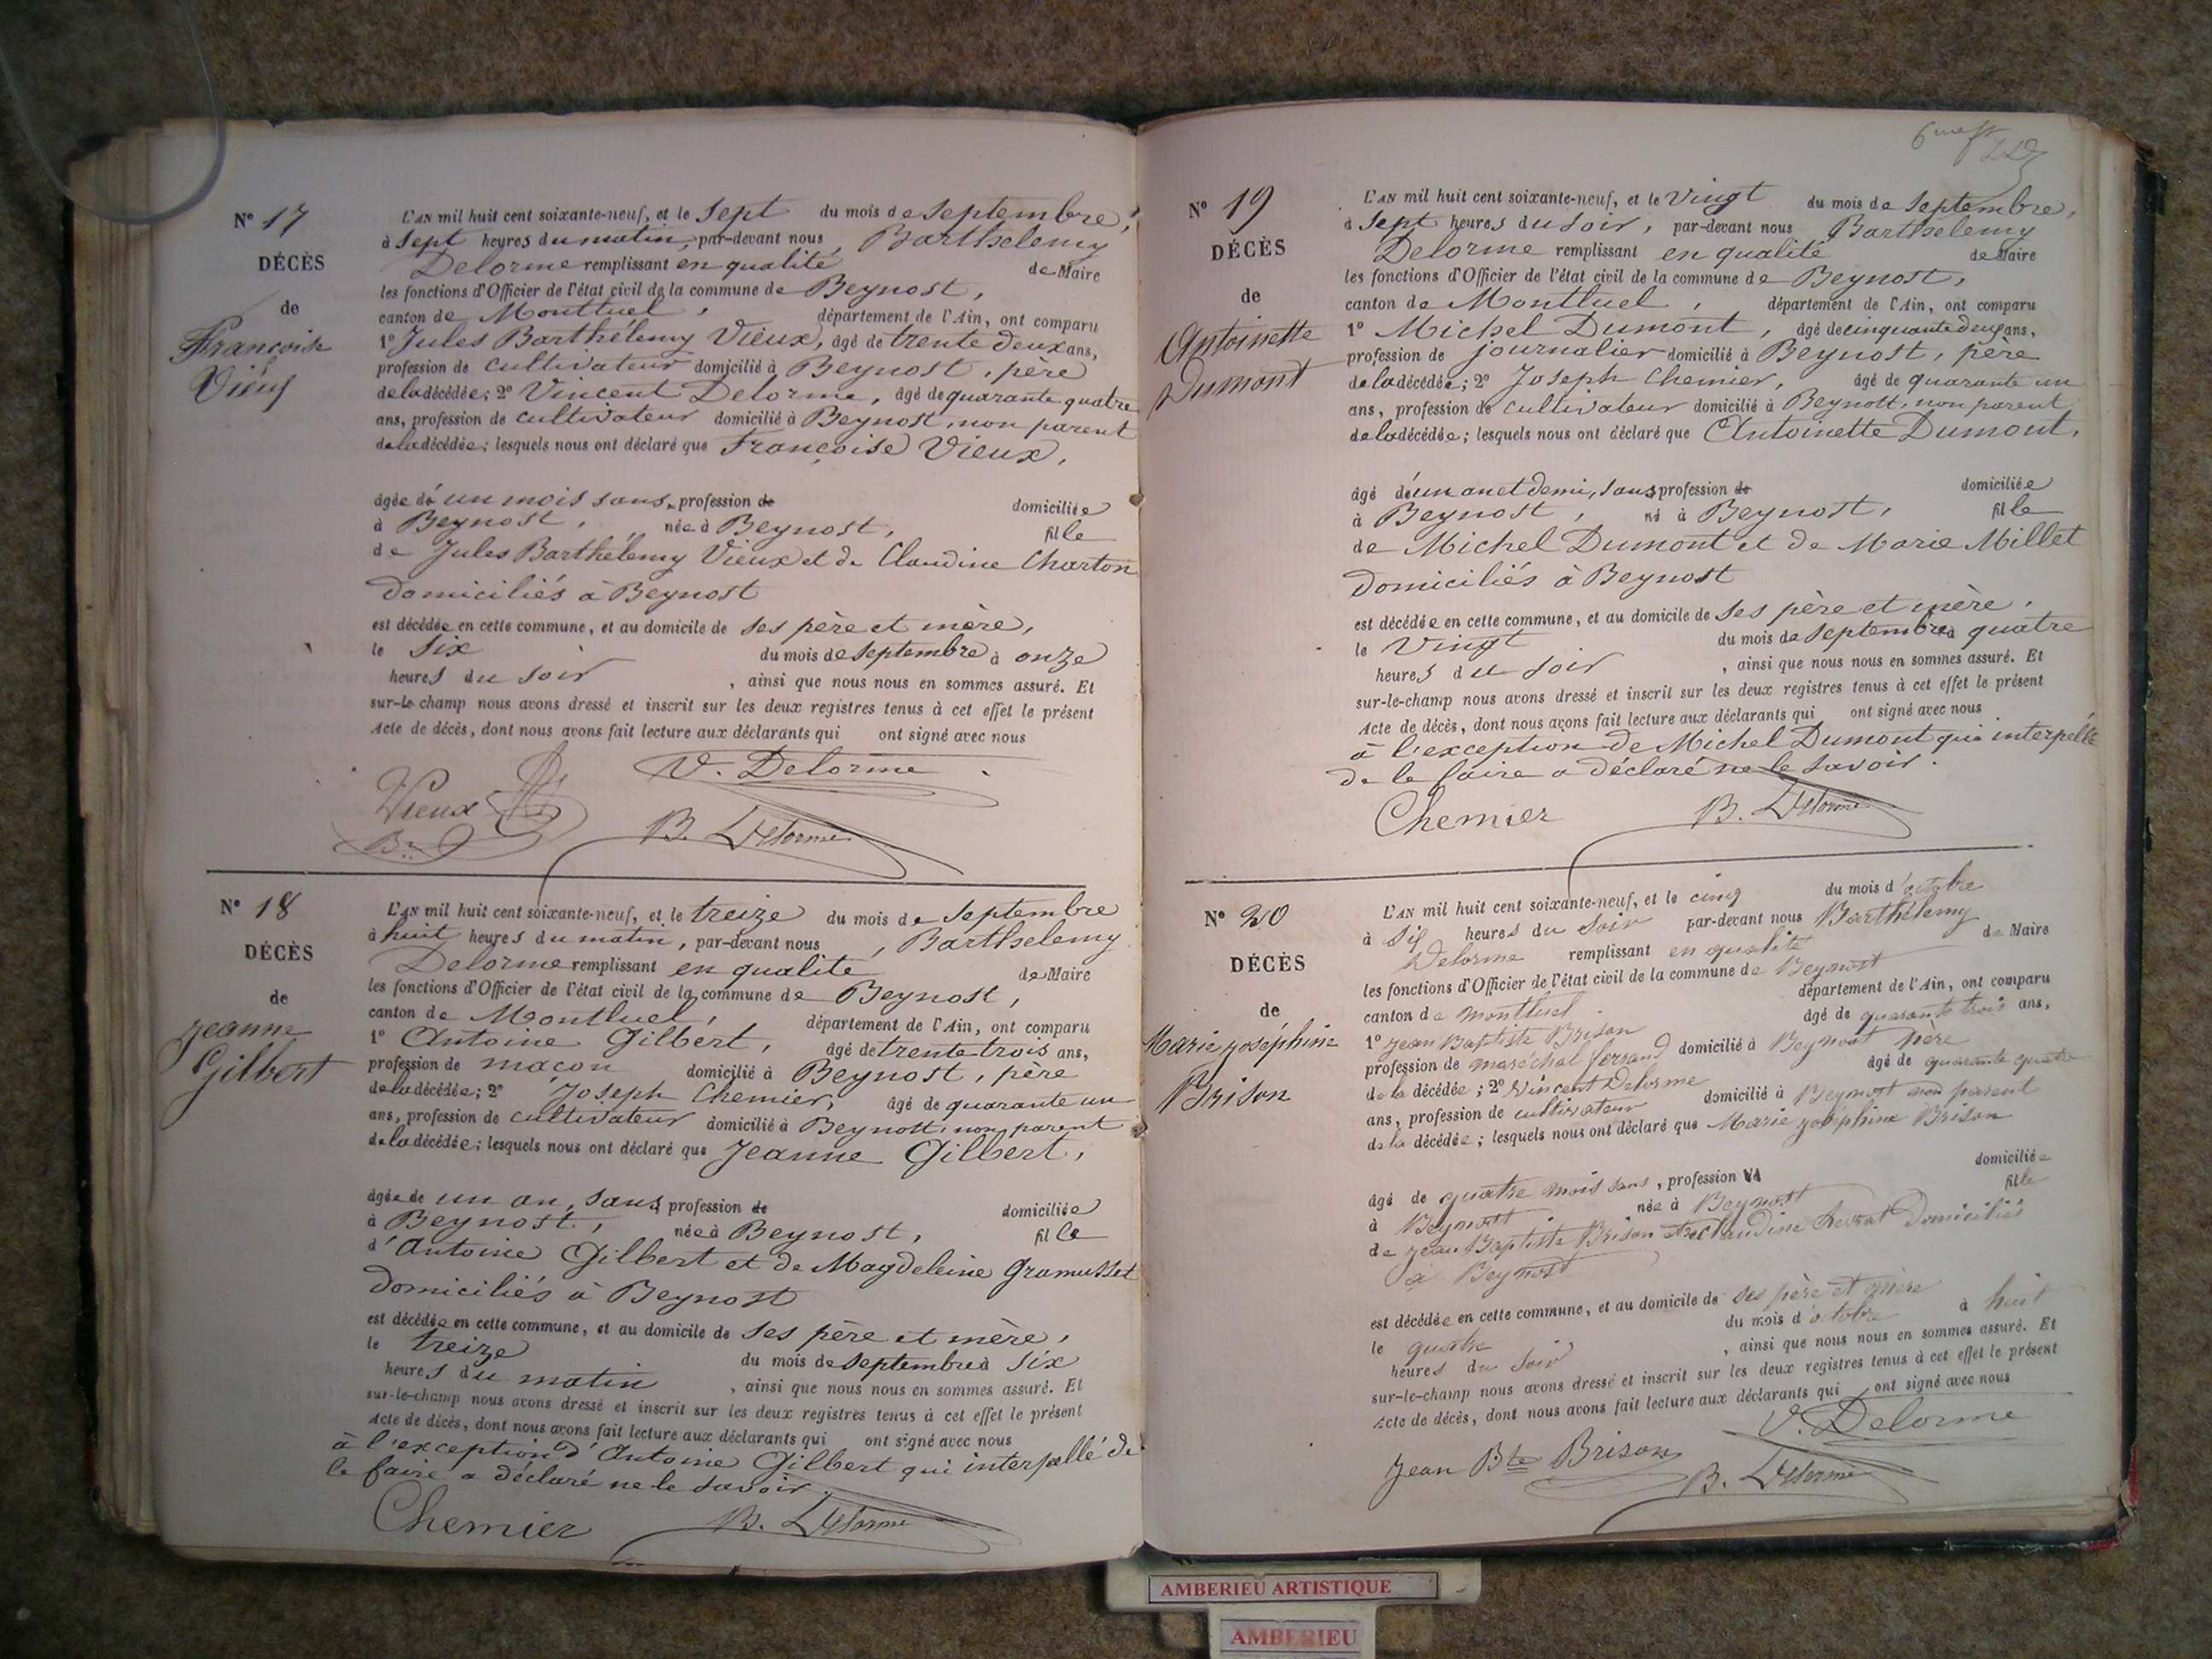 Nº 17
DÉCÈS
de
Françoise
Vieux
L'AN mil huit cent soixante-neuf, et le sept du mois de septembre,
à sept heures du matin, par-devant nous, Barthelemy
Delorme remplissant en qualité de Maire
les fonctions d'Officier de l'état civil de la commune de Beynost,
canton de Montluel, département de l'Ain, ont comparu
1º Jules Barthélemy Vieux, âgé de trente deux ans,
profession de cultivateur domicilié à Beynost, père
de la décédée; 2º Vincent Delorme, âgé de quarante quatre
ans, profession de cultivateur domicilié à Beynost, non parent
de la décédée; lesquels nous ont déclaré que Françoise Vieux,
âgée de un mois sans profession de domiciliée
à Beynost, née à Beynost, fille
de Jules Barthélemy Vieux et de Claudine Charton
domiciliés à Beynost
est décédée en cette commune, et au domicile de ses père et mère,
le six du mois de septembre à onze
heures du soir, ainsi que nous nous en sommes assuré. Et
sur-le-champ nous avons dressé et inscrit sur les deux registres tenus à cet effet le présent
Acte de décès, dont nous avons fait lecture aux déclarants qui ont signé avec nous
V. Delorme
Vieux
B. Delorme
Nº 18
DÉCÈS
de
Jeanne
Gilbert
L'AN mil huit cent soixante-neuf, et le treize du mois de septembre
à huit heures du matin, par-devant nous, Barthelemy
Delorme remplissant en qualité de Maire
les fonctions d'Officier de l'état civil de la commune de Beynost,
canton de Montluel, département de l'Ain, ont comparu
1º Antoine Gilbert, âgé de trente trois ans,
profession de maçon domicilié à Beynost, père
de la décédée; 2º Joseph Chemier, âgé de quarante un
ans, profession de cultivateur domicilié à Beynost, non parent
de la décédée; lesquels nous ont déclaré que Jeanne Gilbert,
âgée de un an, sans profession de domiciliée
à Beynost, née à Beynost, fille
d'Antoine Gilbert et de Magdeleine Gramusset
domiciliés à Beynost
est décédée en cette commune, et au domicile de ses père et mère,
le treize du mois de septembre à six
heures du matin, ainsi que nous nous en sommes assuré. Et
sur-le-champ nous avons dressé et inscrit sur les deux registres tenus à cet effet le présent
Acte de décès, dont nous avons fait lecture aux déclarants qui ont signé avec nous
à l'exception d'Antoine Gilbert qui interpellé de
le faire a déclaré ne le savoir.
Chemier B. Delorme
Nº 19
DÉCÈS
de
Antoinette
Dumont
L'AN mil huit cent soixante-neuf, et le vingt du mois de septembre,
à sept heures du soir, par-devant nous Barthélemy
Delorme remplissant en qualité de Maire
les fonctions d'Officier de l'état civil de la commune de Beynost,
canton de Montluel, département de l'Ain, ont comparu
1º Michel Dumont, âgé de cinquante deux ans,
profession de journalier domicilié à Beynost, père
de la décédée; 2º Joseph Chemier, âgé de quarante un
ans, profession de cultivateur domicilié à Beynost, non parent
de la décédée; lesquels nous ont déclaré que Antoinette Dumont,
âgé de un an et demi, sans profession de domiciliée
à Beynost, né à Beynost, fille
de Michel Dumont et de Marie Millet
domiciliés à Beynost
est décédée en cette commune, et au domicile de ses père et mère,
le vingt du mois de septembre à quatre
heures du soir, ainsi que nous nous en sommes assuré. Et
sur-le-champ nous avons dressé et inscrit sur les deux registres tenus à cet effet le présent
Acte de décès, dont nous avons fait lecture aux déclarants qui ont signé avec nous
à l'exception de Michel Dumont qui interpellé
de le faire a déclaré ne le savoir.
Chemier B. Delorme
Nº 20
DÉCÈS
de
Marie Joséphine
Brison
L'AN mil huit cent soixante-neuf, et le cinq du mois d'octobre
à six heures du soir par-devant nous Barthélemy
Delorme remplissant en qualité de Maire
les fonctions d'Officier de l'état civil de la commune de Beynost
canton de Montluel département de l'Ain, ont comparu
1º Jean Baptiste Brison âgé de quarante trois ans,
profession de maréchal ferrand domicilié à Beynost père
de la décédée; 2º Vincent Delorme âgé de quarante quatre
ans, profession de cultivateur domicilié à Beynost non parent
de la décédée; lesquels nous ont déclaré que Marie Joséphine Brison
âgé de quatre mois sans, profession domiciliée
à Beynost née à Beynost fille
de Jean Baptiste Brison et de Claudine domiciliés
à Beynost
est décédée en cette commune, et au domicile de ses père et mère
le quatre du mois d'octobre à huit
heures du soir, ainsi que nous nous en sommes assuré. Et
sur-le-champ nous avons dressé et inscrit sur les deux registres tenus à cet effet le présent
Acte de décès, dont nous avons fait lecture aux déclarants qui ont signé avec nous
V. Delorme
Jean Bte Brison B. Delorme
AMBERIEU ARTISTIQUE
AMBERIEU